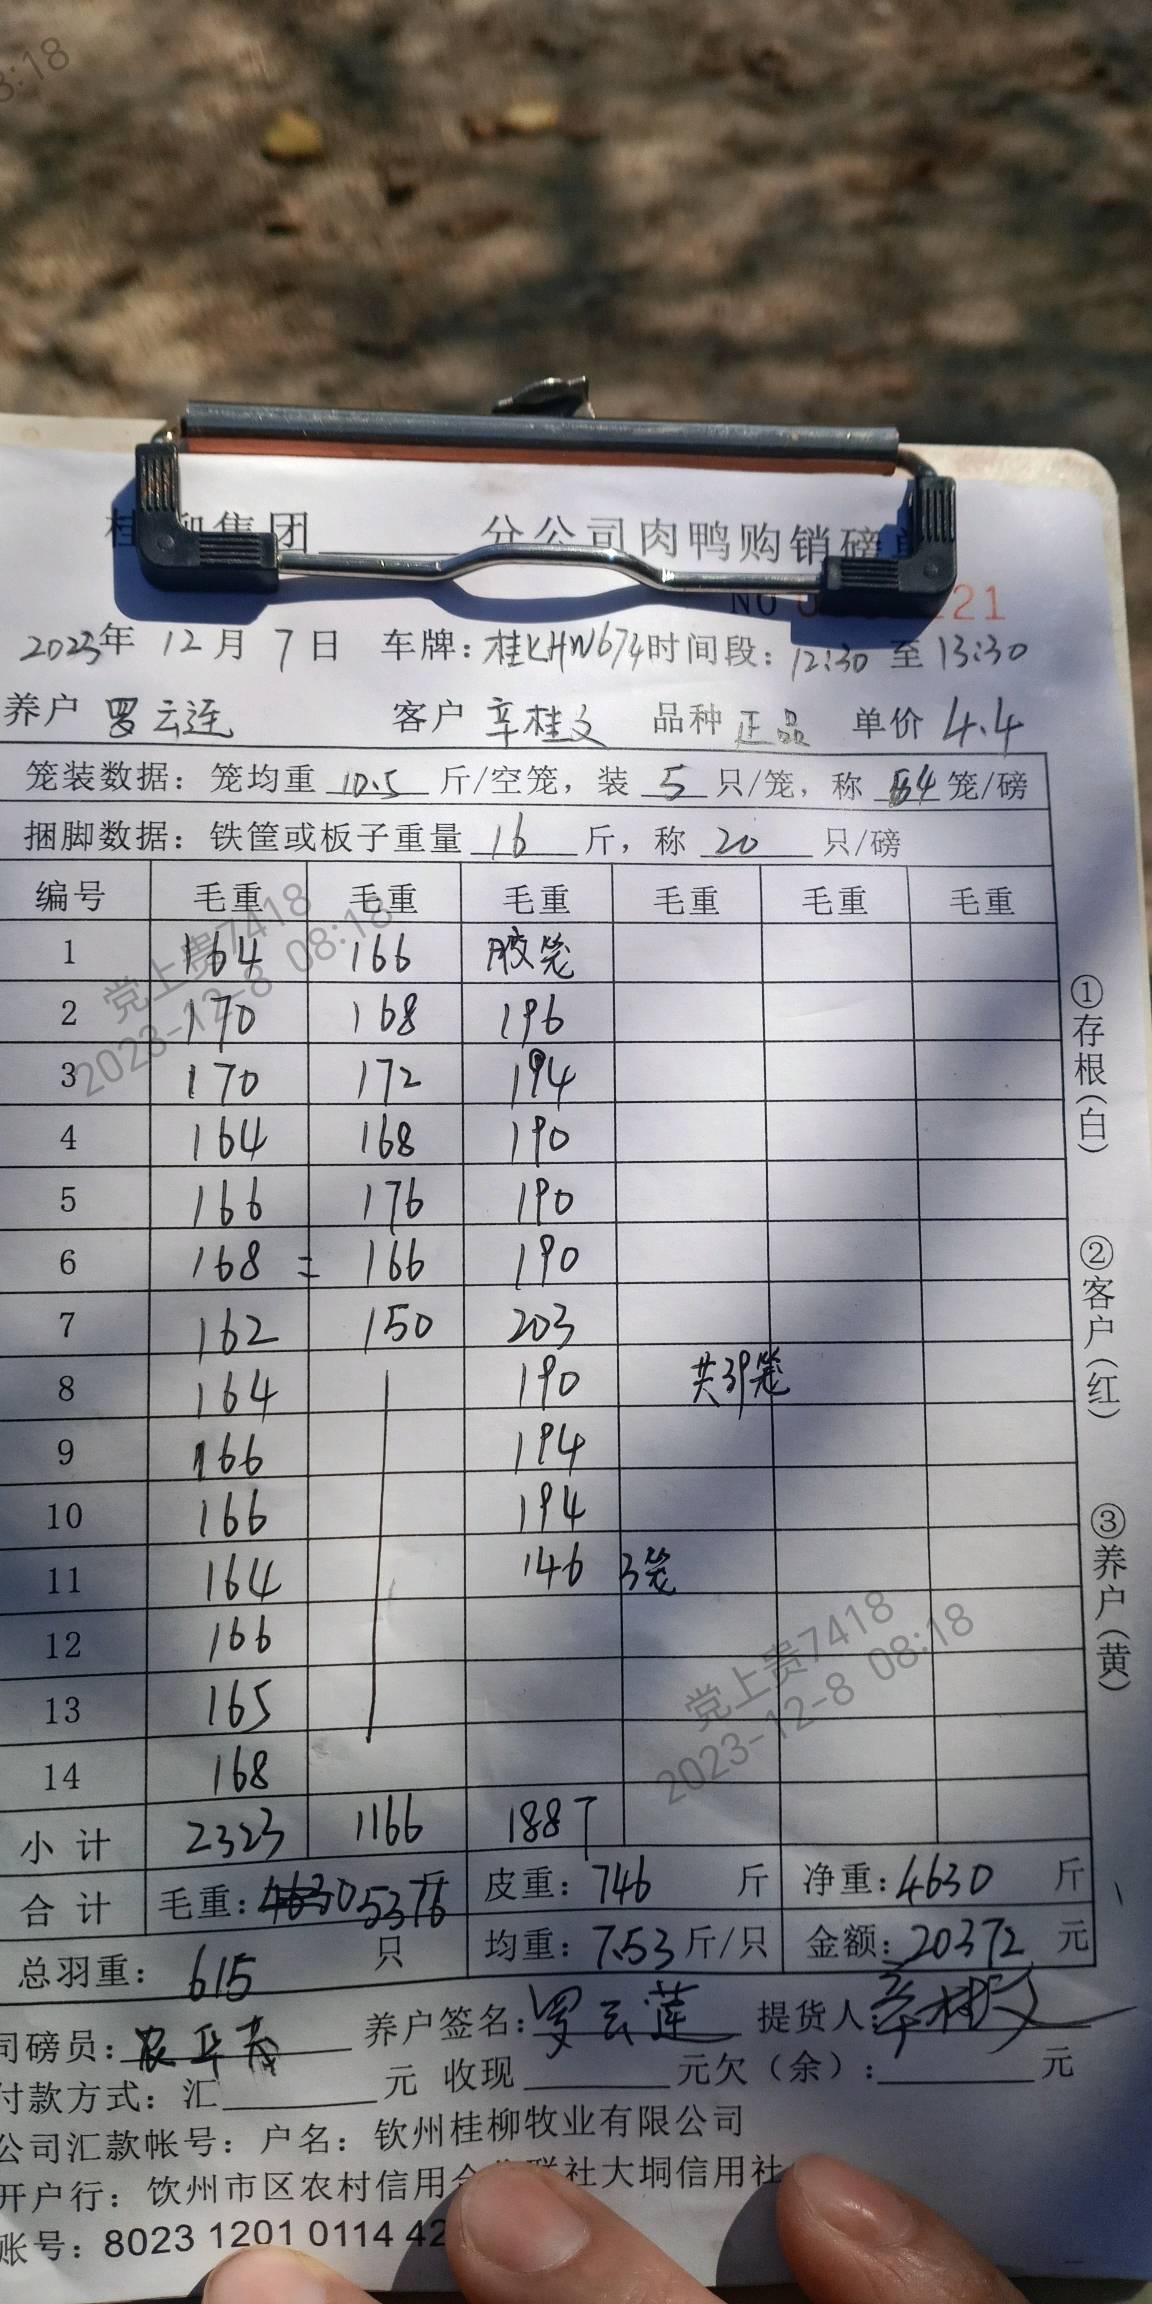 桂柳集团 分公司肉鸭购销磅单
NO 21
2023年 12月 7日 车牌：桂KHW674 时间段：12:30 至 13:30
养户 罗云连 客户 辛桂文 品种 正品 单价 4.4
笼装数据：笼均重 10.5 斤/空笼，装 5 只/笼，称 4 笼/磅
捆脚数据：铁筐或板子重量 16 斤，称 20 只/磅
编号 毛重 毛重 毛重 毛重 毛重 毛重
1 164 166 胶笼
2 170 168 196
3 170 172 194
4 164 168 190
5 166 176 190
6 168 = 166 190
7 162 150 203
8 164 190 共39笼
9 166 194
10 166 194
11 164 146 3笼
12 166
13 165
14 168
小计 2323 1166 1887
合计 毛重：4630 5376 斤 皮重：746 斤 净重：4630 斤
总羽重：615 只 均重：7.53 斤/只 金额：20372 元
司磅员： 养户签名：罗云莲 提货人：辛桂文
付款方式：汇 元 收现 元欠（余）： 元
公司汇款帐号：户名：钦州桂柳牧业有限公司
开户行：钦州市区农村信用合 联社大垌信用社
账号：8023 1201 0114 42
①存根（白）
②客户（红）
③养户（黄）
8:18
党上贵7418
2023-12-8 08:18
党上贵7418
2023-12-8 08:18